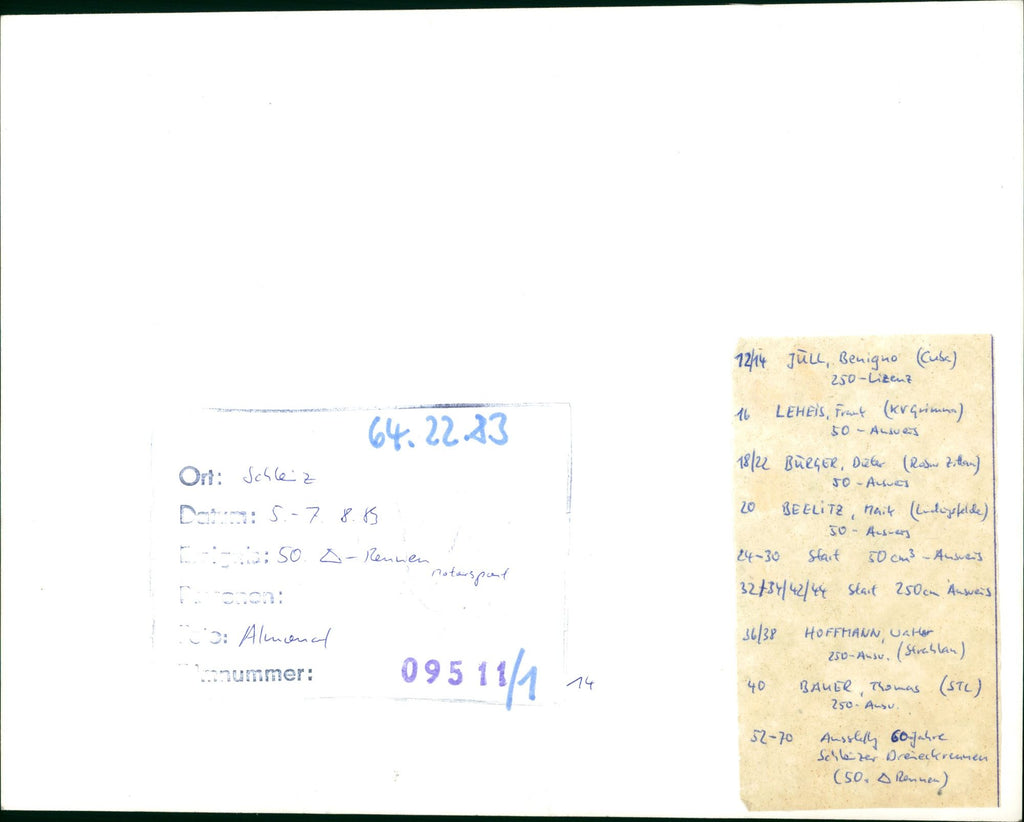 64.22.83
Ort: Schleiz
Datum: 5.-7. 8. 83
Ereignis: 50. △-Rennen
Motorsport
Personen:
Foto: Almonat
Filmnummer: 09511/1
14
12/14 JÜLL, Benigno (Cuba)
250-Lizenz
16 LEHEIS, Frank (KV Grimma)
50 - Ausweis
18/22 BÜRGER, Dieter (Robur Zittau)
50 - Ausweis
20 BEELITZ, Maik (Ludwigsfelde)
50 - Ausweis
24-30 Start 50 cm³ - Ausweis
32/34/42/44 Start 250 cm Ausweis
36/38 HOFFMANN, Walter
250-Ausw. (Strahlau)
40 BAUER, Thomas (STL)
250-Ausw.
52-70 60 Jahre
Schleizer Dreieckrennen
(50. △ Rennen)